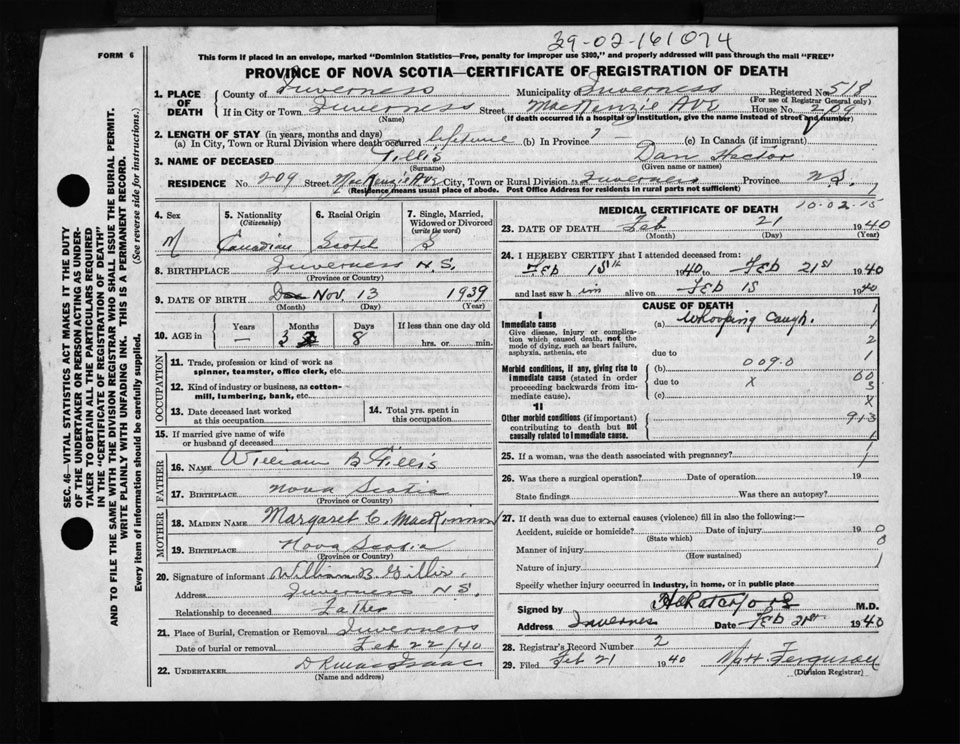 39-02-161074
FORM 6
This form if placed in an envelope, marked "Dominion Statistics—Free, penalty for improper use $300," and properly addressed will pass through the mail "FREE"
PROVINCE OF NOVA SCOTIA—CERTIFICATE OF REGISTRATION OF DEATH
1. PLACE OF DEATH
County of Inverness Municipality Inverness Registered No. 518
(For use of Registrar General only)
If in City or Town Inverness Street MacKenzie Ave House No. 209
(Name) (If death occurred in a hospital or institution, give the name instead of street and number)
2. LENGTH OF STAY (in years, months and days)
(a) In City, Town or Rural Division where death occurred lifetime (b) In Province? (c) In Canada (if immigrant)
3. NAME OF DECEASED Gillis Dan Hector
(Surname) (Given name or names)
RESIDENCE No. 209 Street MacKenzie Ave City, Town or Rural Division Inverness Province N.S.
(Residence means usual place of abode. Post Office address for residents in rural parts not sufficient)
4. Sex
M
5. Nationality (Citizenship)
Canadian
6. Racial Origin
Scotch
7. Single, Married, Widowed or Divorced (write the word)
S
8. BIRTHPLACE Inverness N.S.
(Province or Country)
9. DATE OF BIRTH Nov 13 1939
(Month) (Day) (Year)
10. AGE in Years Months Days If less than one day old
— 3 8 hrs. or min.
OCCUPATION
11. Trade, profession or kind of work as spinner, teamster, office clerk, etc.
12. Kind of industry or business, as cotton-mill, lumbering, bank, etc.
13. Date deceased last worked at this occupation
14. Total yrs. spent in this occupation
15. If married give name of wife or husband of deceased
FATHER
16. NAME William B Gillis
17. BIRTHPLACE Nova Scotia
(Province or Country)
MOTHER
18. MAIDEN NAME Margaret C. MacKinnon
19. BIRTHPLACE Nova Scotia
(Province or Country)
20. Signature of informant William B. Gillis.
Address Inverness N.S.
Relationship to deceased Father
21. Place of Burial, Cremation or Removal Inverness
Date of burial or removal Feb 22/40
22. UNDERTAKER D R MacIsaac
(Name and address)
MEDICAL CERTIFICATE OF DEATH
10-02-15
23. DATE OF DEATH Feb 21 1940
(Month) (Day) (Year)
24. I HEREBY CERTIFY that I attended deceased from:
Feb 15th 1940 to Feb 21st 1940
and last saw him alive on Feb 18 1940
CAUSE OF DEATH
I
Immediate cause
Give disease, injury or complication which caused death, not the mode of dying, such as heart failure, asphyxia, asthenia, etc
(a) Whooping Cough.
due to
Morbid conditions, if any, giving rise to immediate cause (stated in order proceeding backwards from immediate cause).
(b) 009.0
due to X
(c)
II
Other morbid conditions (if important) contributing to death but not causally related to immediate cause.
913
25. If a woman, was the death associated with pregnancy?
26. Was there a surgical operation? Date of operation 19
State findings Was there an autopsy?
27. If death was due to external causes (violence) fill in also the following:—
Accident, suicide or homicide? Date of injury 19
(State which)
Manner of injury
(How sustained)
Nature of injury
Specify whether injury occurred in industry, in home, or in public place
Signed by M.D.
Address Inverness Date Feb 21st 1940
28. Registrar's Record Number 2
29. Filed Feb 21 1940 Ferguson
(Division Registrar)
SEC. 46—VITAL STATISTICS ACT MAKES IT THE DUTY
OF THE UNDERTAKER OR PERSON ACTING AS UNDER-
TAKER TO OBTAIN ALL THE PARTICULARS REQUIRED
IN THE "CERTIFICATE OF REGISTRATION OF DEATH"
AND TO FILE THE SAME WITH THE DIVISION REGISTRAR WHO SHALL ISSUE THE BURIAL PERMIT.
WRITE PLAINLY WITH UNFADING INK. THIS IS A PERMANENT RECORD.
Every item of information should be carefully supplied. (See reverse side for instructions.)